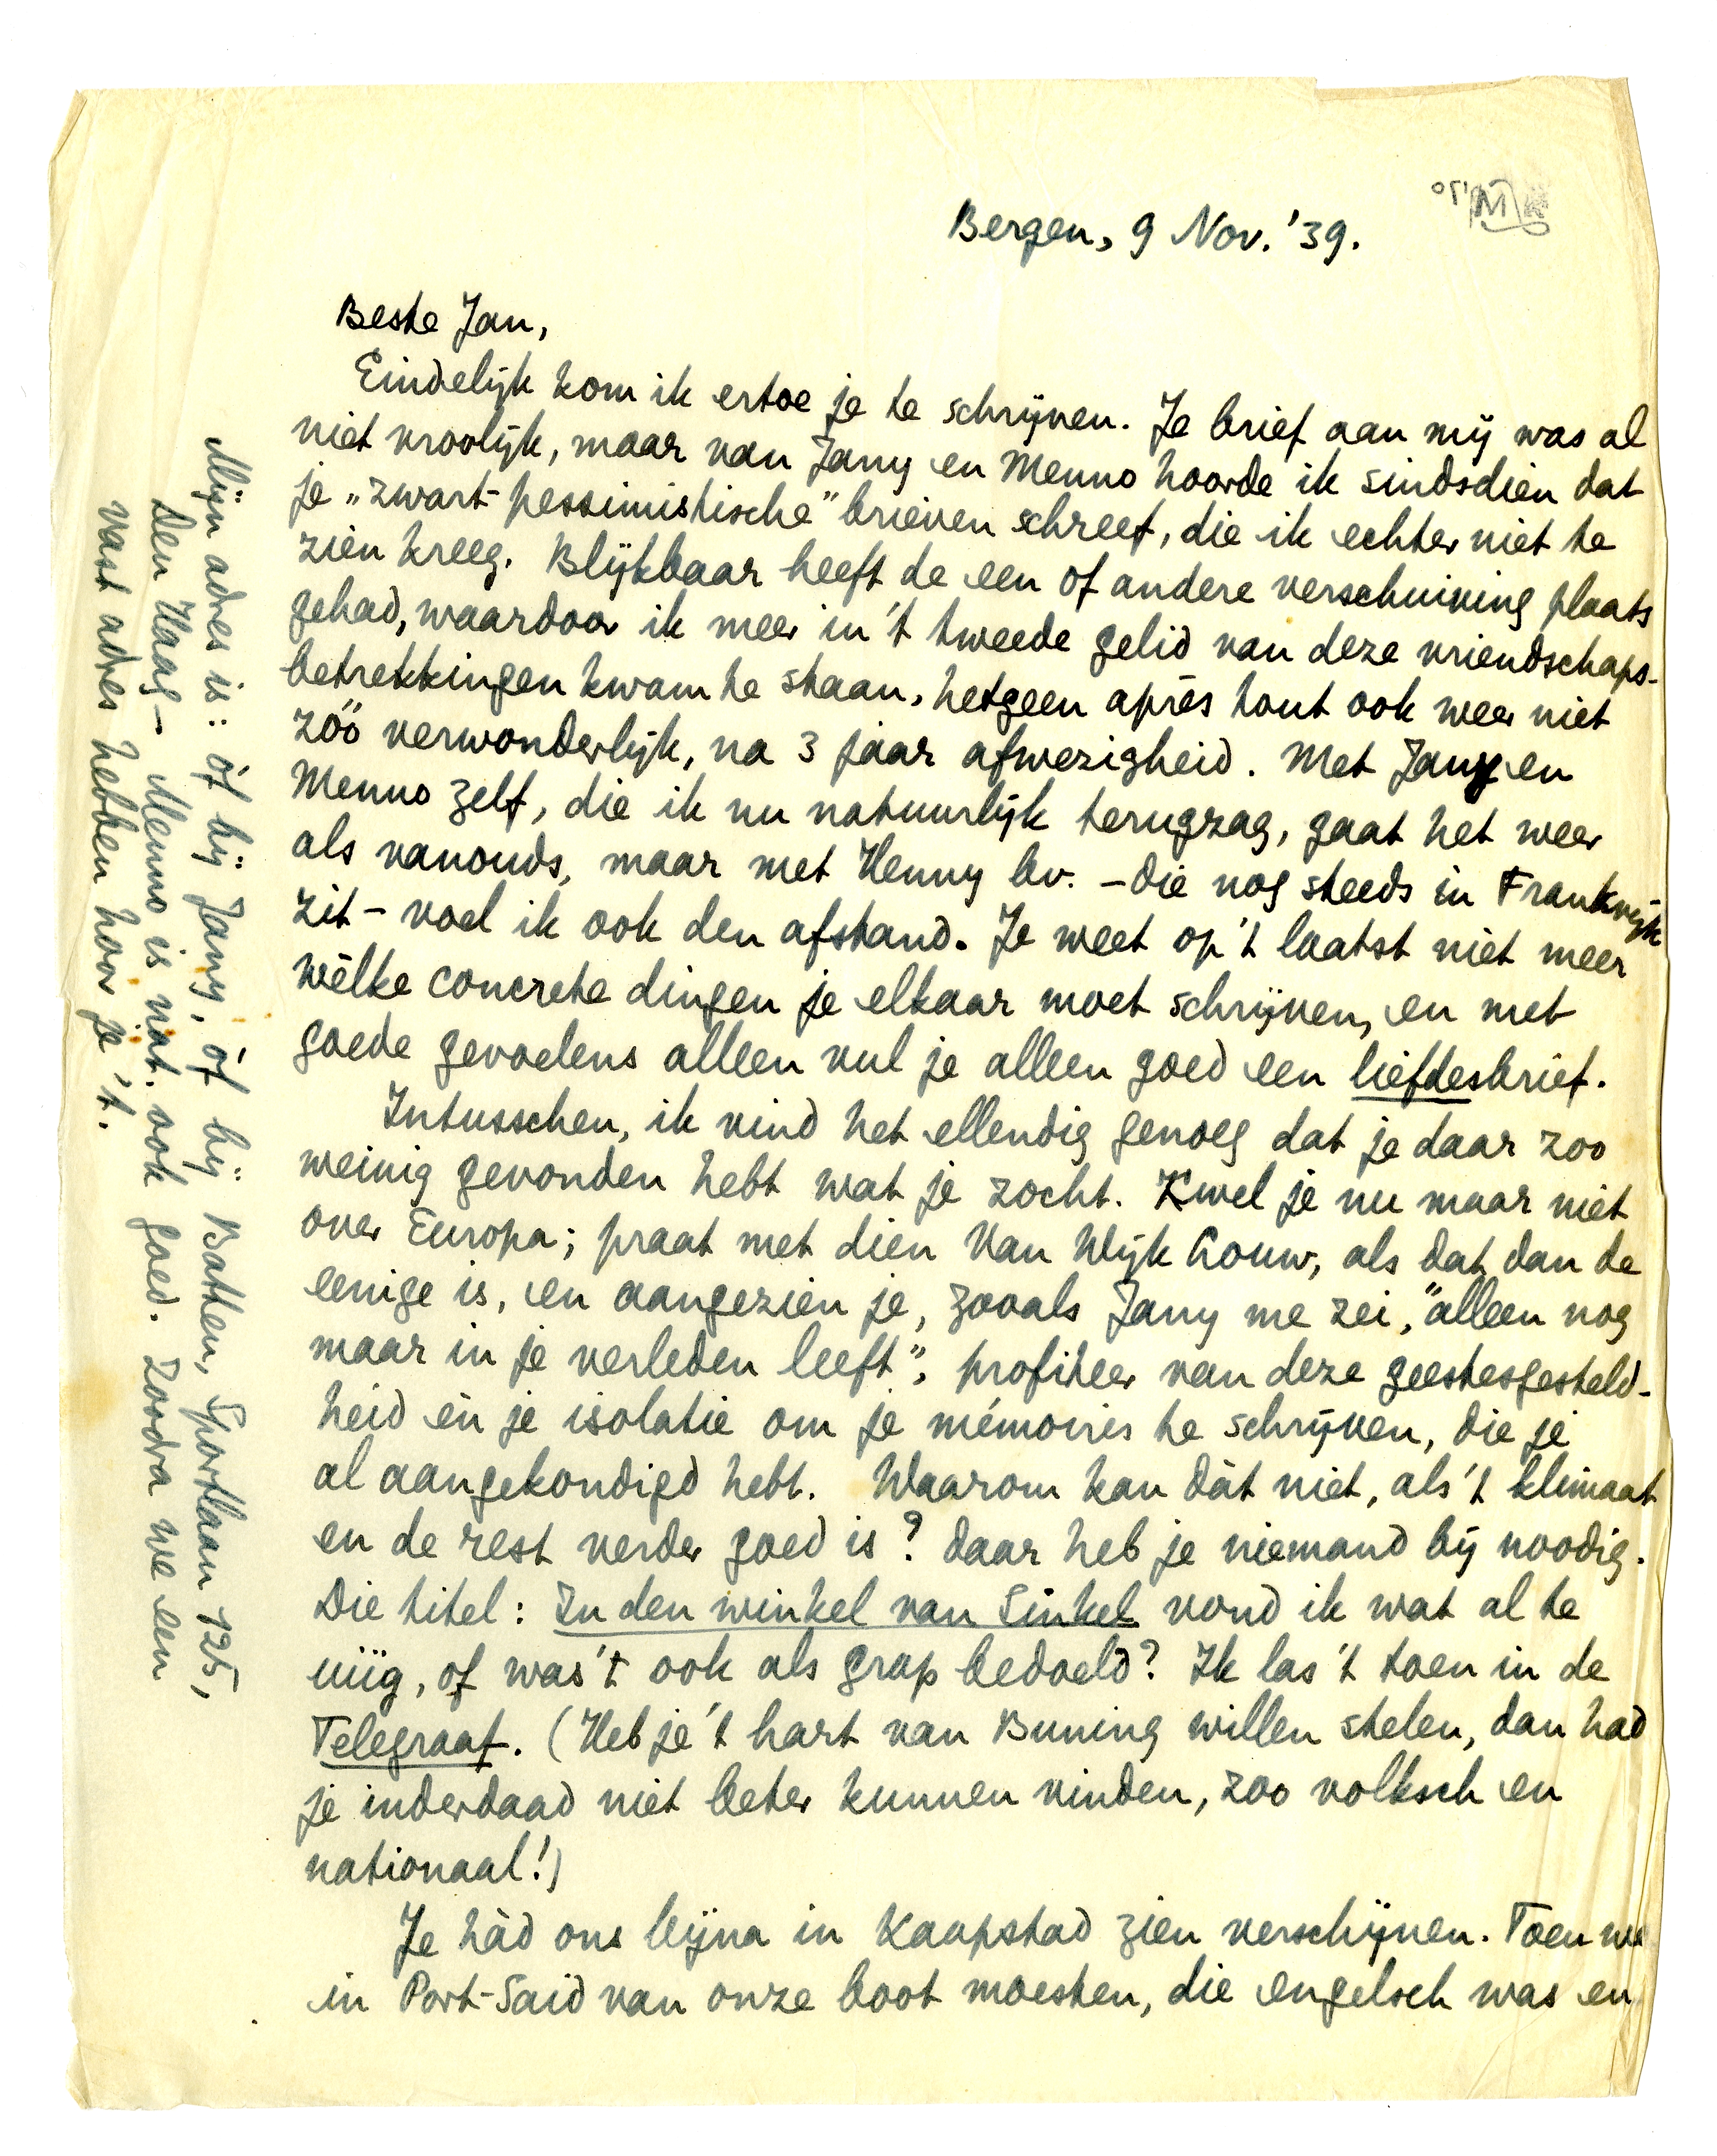 Bergen, 9 Nov. '39.
Beste Jan,
Eindelijk kom ik ertoe je te schrijven. Je brief aan mij was al
niet vroolijk, maar van Jany en Menno hoorde ik sindsdien dat
je „zwart-pessimistische" brieven schreef, die ik echter niet te
zien kreeg. Blijkbaar heeft de een of andere verschuiving plaats
gehad, waardoor ik meer in 't tweede gelid van deze vriendschaps-
betrekkingen kwam te staan, hetgeen après tout ook weer niet
zóó verwonderlijk, na 3 jaar afwezigheid. Met Jany en
Menno zelf, die ik nu natuurlijk terugzag, gaat het weer
als vanouds, maar met Henny bv. – die nog steeds in Frankrijk
zit – voel ik ook den afstand. Je weet op 't laatst niet meer
wèlke concrete dingen je elkaar moet schrijven, en met
goede gevoelens alleen vul je alleen goed een liefdesbrief.
Intusschen, ik vind het ellendig genoeg dat je daar zoo
weinig gevonden hebt wat je zocht. Kwel je nu maar niet
over Europa; praat met dien Van Wijk Louw, als dat dan de
eenige is, en aangezien je, zooals Jany me zei, "alleen nog
maar in je verleden leeft", profiteer van deze geestesgesteld-
heid èn je isolatie om je mémoires te schrijven, die je
al aangekondigd hebt. Waarom kan dàt niet, als 't klimaat
en de rest verder goed is? daar heb je niemand bij noodig.
Die titel: In den winkel van Sinkel vond ik wat al te
uiig, of was 't ook als grap bedoeld? Ik las 't toen in de
Telegraaf. (Heb je 't hart van Buning willen stelen, dan had
je inderdaad niet beter kunnen vinden, zoo volksch en
nationaal!)
Je hàd ons bijna in Kaapstad zien verschijnen. Toen we
in Port-Said van onze boot moesten, die engelsch was en
Mijn adres is: óf bij Jany, óf bij Batten, Sportlaan 125,
Den Haag – Menno is nat. ook goed. Zoodra we een
vast adres hebben hoor je 't.